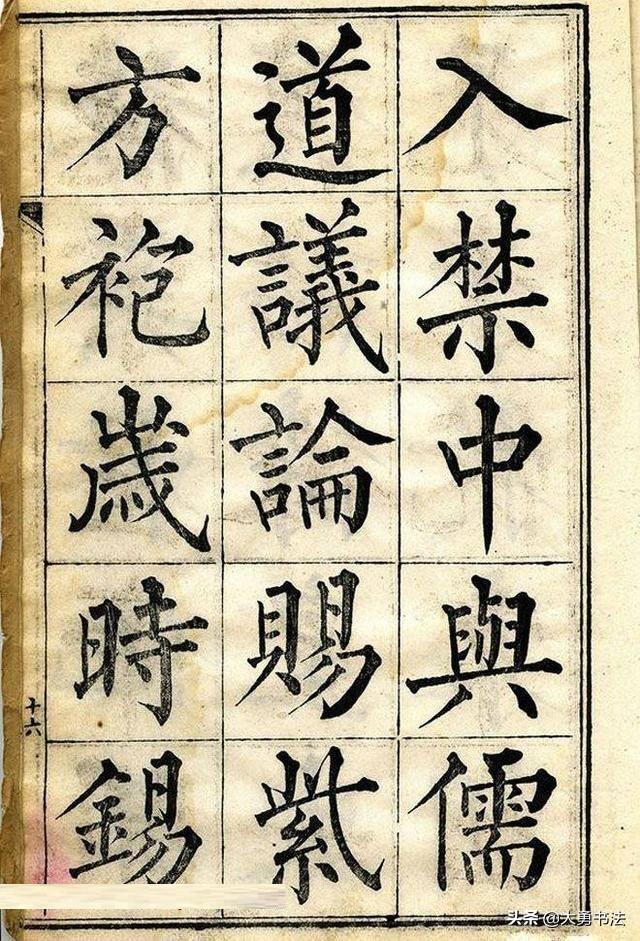 入禁中與儒
道議論賜紫
方袍歲時錫
十六
头条@大勇书法